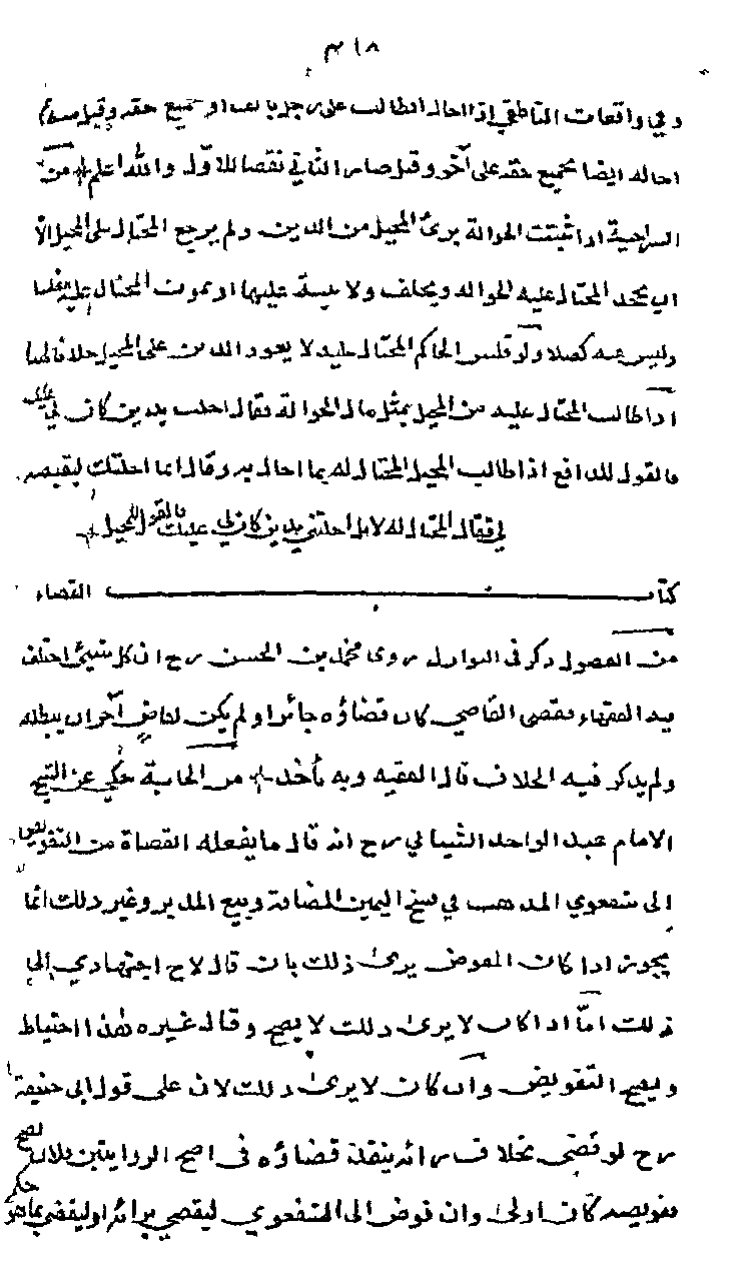 ٣١٨
وفي واقعات الناطفي إذا احال الطالب على رجل بالف او بجميع حقه وقبل منه ثم
احاله ايضا بجميع حقه على آخر وقبل صار الثاني نقضا للاول والله اعلم من
السراجية اذا ثبتت الحوالة برئ المحيل من الدين ولم يرجع المحتال على المحيل الا
ان يجحد المحتال عليه الحواله ويحلف ولا بينة عليها او يموت المحتال عليه مفلسا
وليس عنه كفيلا ولو فلس الحاكم المحتال عليه لا يعود الدين على المحيل خلافا لهما
اذا طالب المحتال عليه من المحيل بمثل مال الحوالة فقال احلت بدين كان لي عليك
فالقول للدافع اذا طالب المحيل المحتال له بما احال به وقال انما احلتك لتقبضه
لي فقال المحتال له لا بل احلتني بدين كان لي عليك فالقول للمحيل
كتاب القضاء
من الفصول ذكر في النوازل روى محمد بن الحسن رح ان كل شيئ اختلف
فيه الفقهاء فقضى القاضي كان قضاؤه جائزا ولم يكن لقاض آخر ان يبطله
ولم يذكر فيه الخلاف قال الفقيه وبه نأخذ من الخانية حكي عن الشيخ
الامام عبد الواحد الشيباني رح انه قال ما يفعله القضاة من التفويض
الى شفعوي المذهب في فسخ اليمين المضافة وبيع المدبر وغير ذلك انما
يجوز اذا كان المفوض يرى ذلك بان قال لاح اجتهادي الى
ذلك امّا اذا كان لا يرى ذلك لا يصح وقال غيره هذا احتياط
ويصح التفويض وان كان لا يرى ذلك لان على قول ابي حنيفة
رح لو قضى بخلاف رائه ينفذ قضاؤه في اصح الروايتين فلان يصح
تفويضه كان اولى وان فوض الى الشفعوي ليقضي برائه او ليقضي بما هو حكم